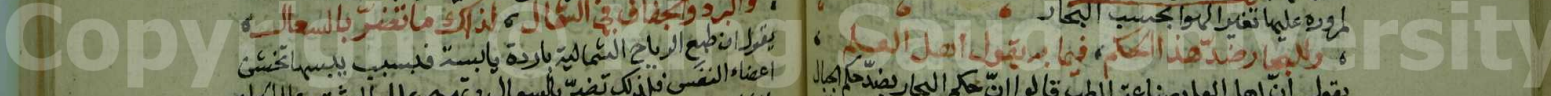 لمروره عليها تغير الهوا بحسب البحار
وللبحار ضد هذا الحكم فيما به يقول اهل العلم
يقول ان اهل العلم بصناعة الطب قالوا ان حكم البحار بضد حكم الجبال
والبرد والجفاف في الشمال لذاك ما تضر بالسعال
يقول ان طبع الرياح الشمالية باردة يابسة فبسبب يبسها تخشن
اعضاء النفس فلذلك تضر بالسعال
Copyright King Saud University